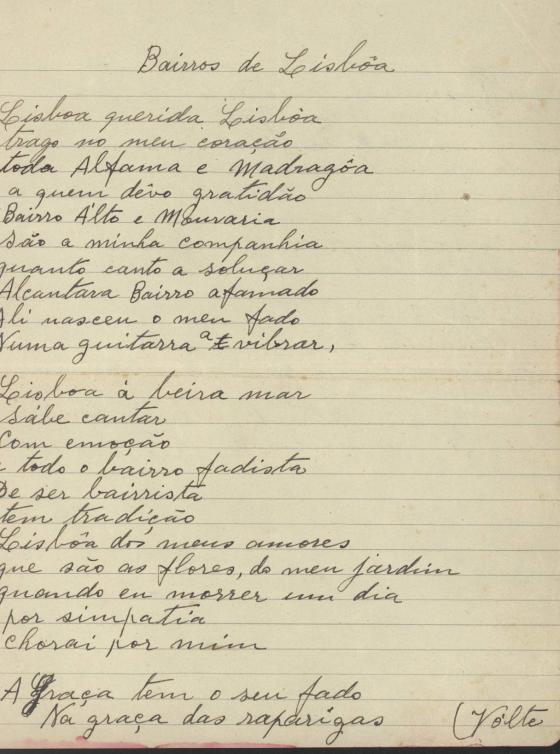 Bairros de Lisbôa
Lisboa querida Lisbôa
trago no meu coração
toda Alfama e Madragôa
a quem dêvo gratidão
Bairro Álto e Mouraria
são a minha companhia
quanto canto a soluçar
Alcantara Bairro afamado
Ali nasceu o meu fado
Numa guitarra a vibrar,
Lisboa á beira mar
Sábe cantar
Com emoção
todo o bairro fadista
De ser bairrista
tem tradição
Lisbôa dos meus amores
que são as flores, do meu jardim
quando eu morrer um dia
por simpatia
chorai por mim
A Graça tem o seu fado
Na graça das raparigas (Vólte